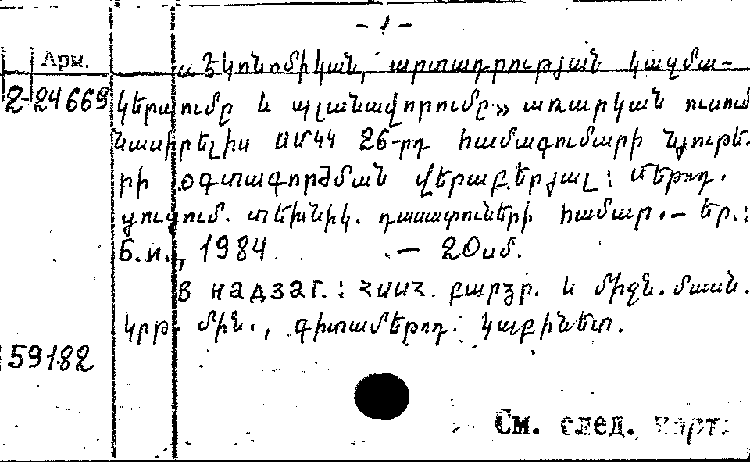 - 1 -
Арм.
«Էկոնոմիկան, արտադրության կազմա-
2-24669 կերպումը և պլանավորումը» առարկան ուսում
նասիրելիս ՍՄԿԿ 26-րդ համագումարի նյութե-
րի օգտագործման վերաբերյալ: Մեթոդ.
ցուցում. տեխնիկ. դասատուների համար. - Եր.:
Б.и., 1984. - 20սմ.
В надзаг.: ՀՍՍՀ բարձր. և միջն. մասն.
կրթ. մին., գիտամեթոդ. կաբինետ.
59182
См. след. карт.